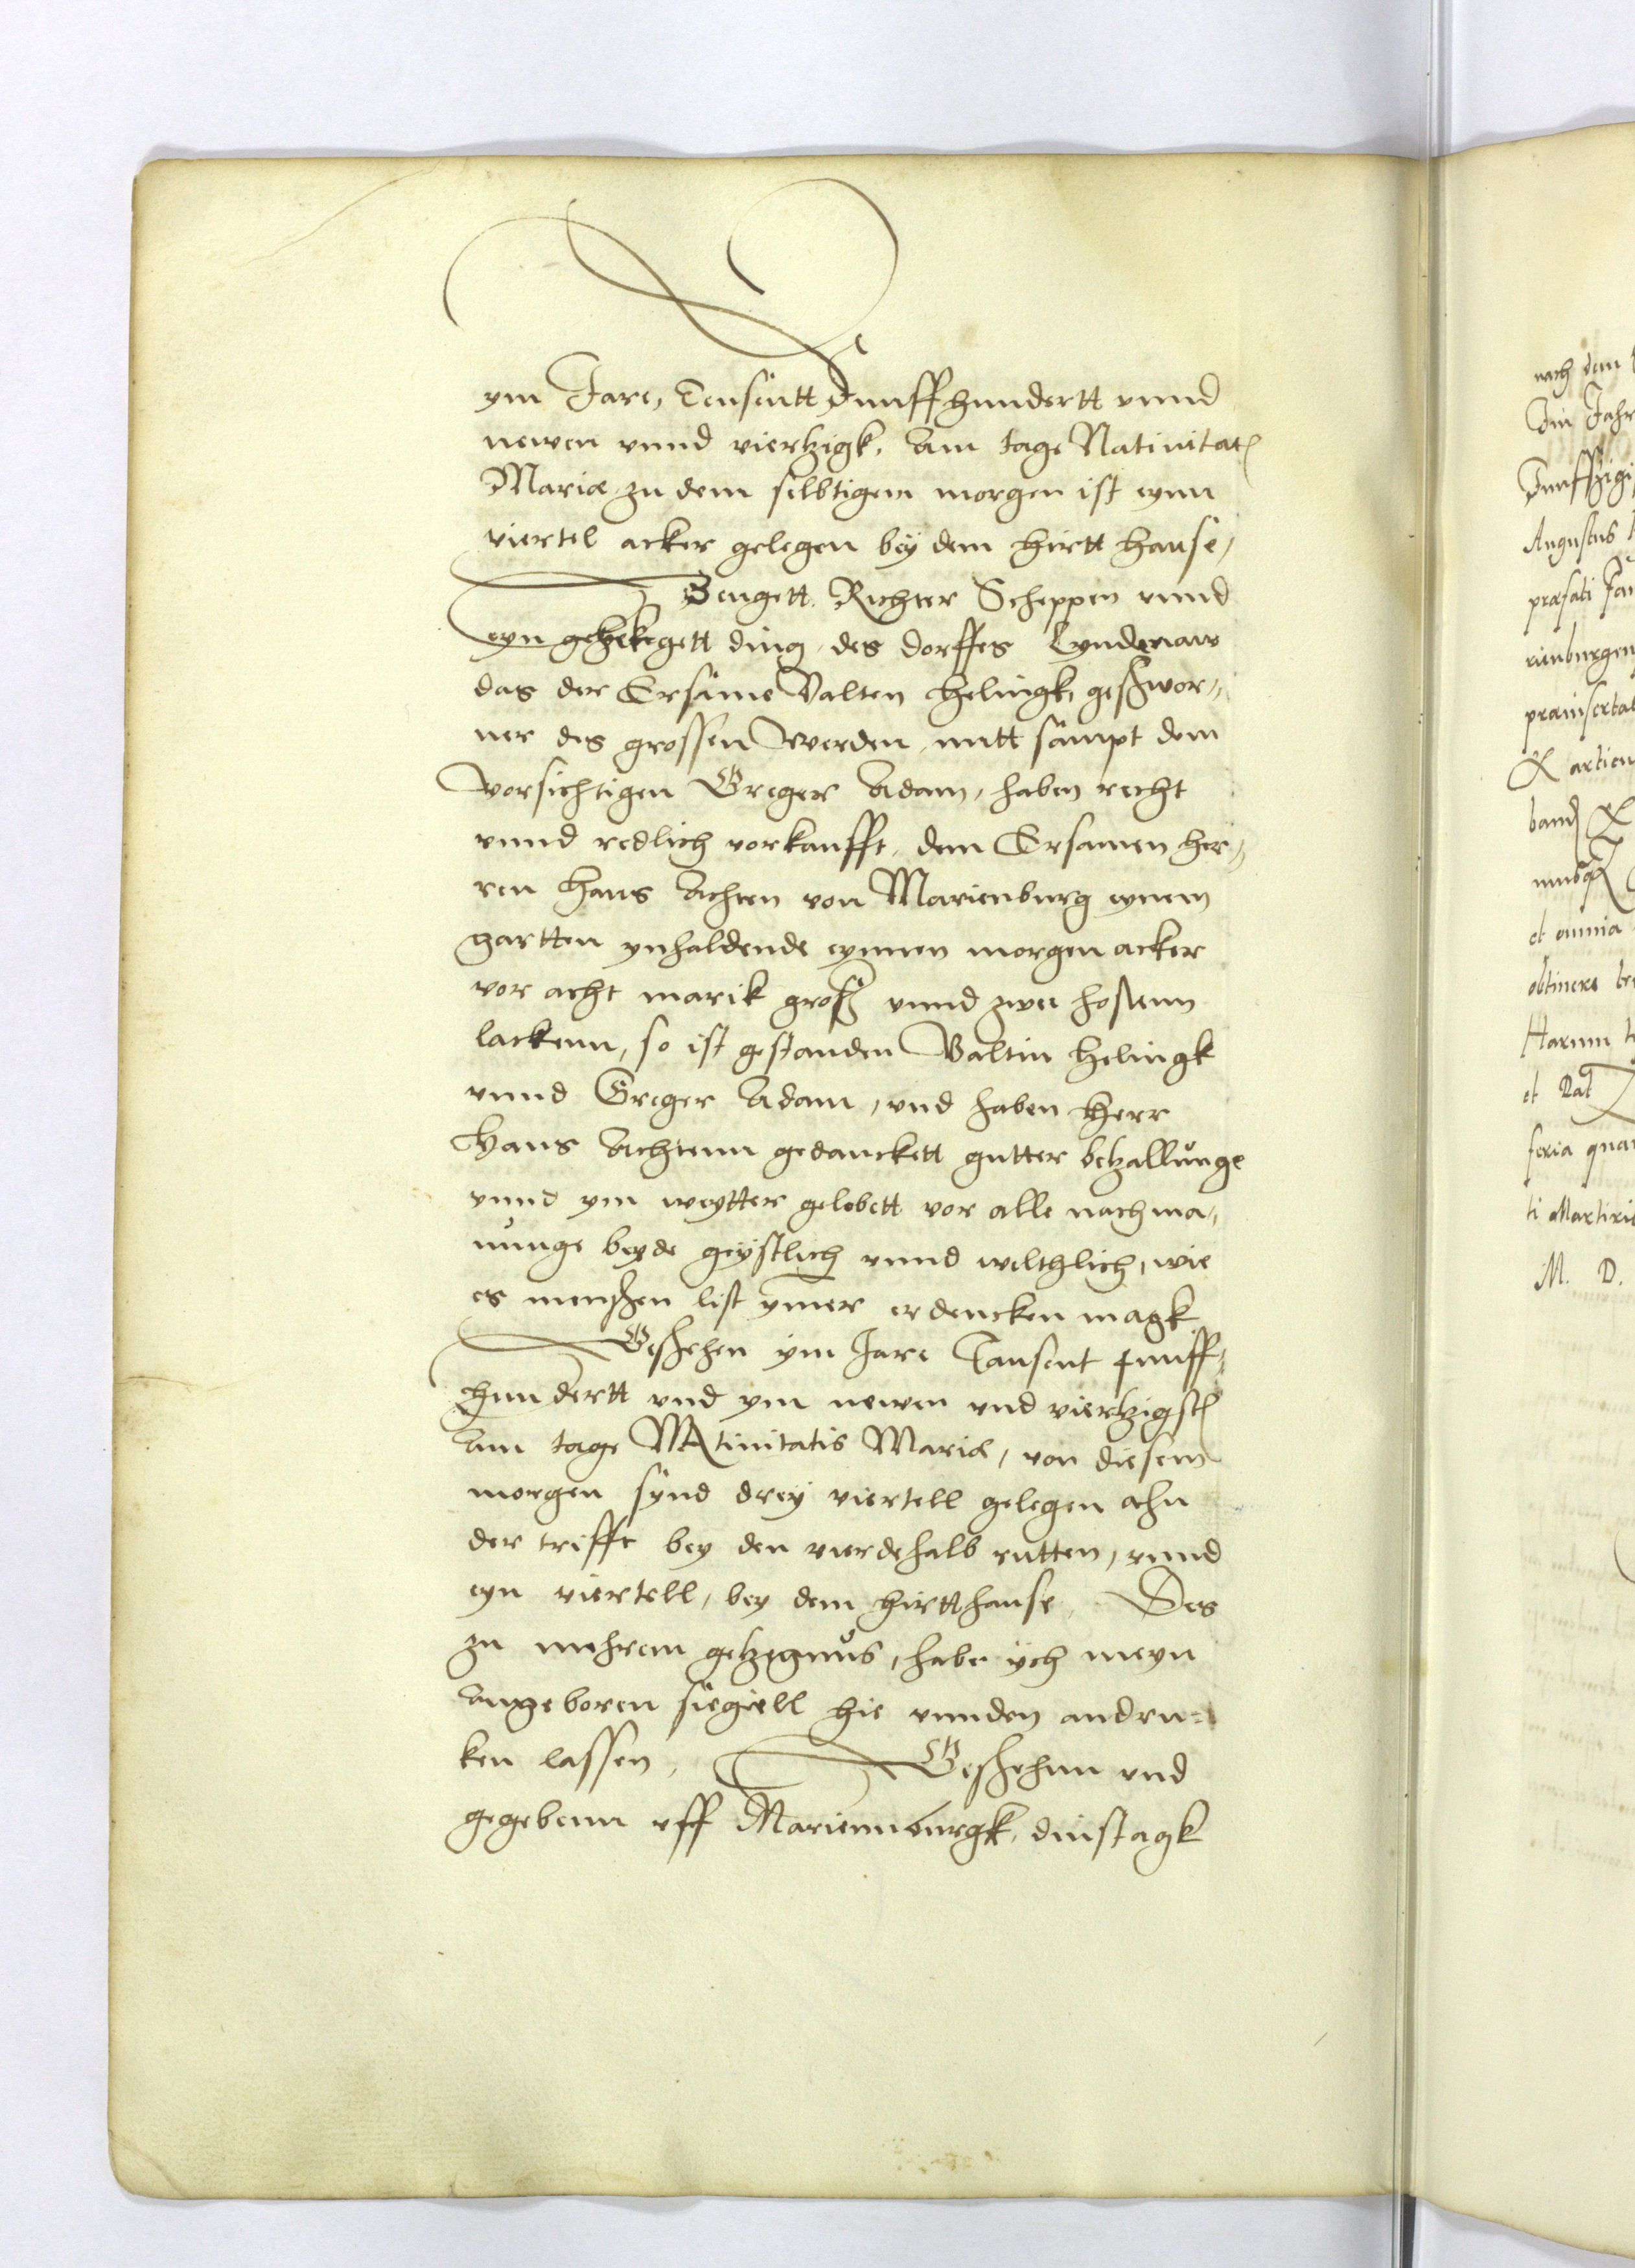 ym Jare, Tensentt Funffhundertt vnnd
newen vnnd viertzigk, Am tage Natiuitat
Mariæ zu dem selbtigem morgen ist eynn
viertel acker gelegen bey dem hirtt hause,
Bengett Richter Scheppen vnnd
eyn gehekegett ding des dorffes Lyndenaw
das der Ersame Valten Helingk, geschwor„
ner des grossen Werden, mitt sampt dem
Vorsichtigen Greger Adam, haben recht
vnnd redlich vorkaufft, dem Ersamen her„
ren Hans Achten von Marienburg eynem
gartten ynhaldende eynnen morgen acker
vor acht marik grosch vnnd zwei hosenn
lackenn, so ist gestanden Valtin Helingk
vnnd Greger Adam, vnd haben Herr
Hans Achtenn gedanckett gutter betzallunge
vnnd ym weytter gelobett vor alle nachma„
nunge beyde geystlich vnnd welthlich, wie
es menschen list ymer erdencken magk
Geschehen ym Jare Tausent Funff„
hundertt vnd ym newen vnd viertzigst
Am tage NAtiuitatis Mariæ, von diesem
morgen synd drey viertell gelegen ahn
der trifft bey den vierdehalb rutten, vnnd
eyn viertell, bey dem hirtthause, Des
zu mehrem getzegnus, habe ych meyn
Angeboren siegiell hie vnnden andru=
ken lassen, Geschehnn vnd
gegebenn vff Mariennburgk, dinstagk
nach dem
Im Jahr
Augustus
præsati
rienburgen
artien
et omnia
obtinere
Harum
et Dat
feria quar
ti Martiris
M. D.